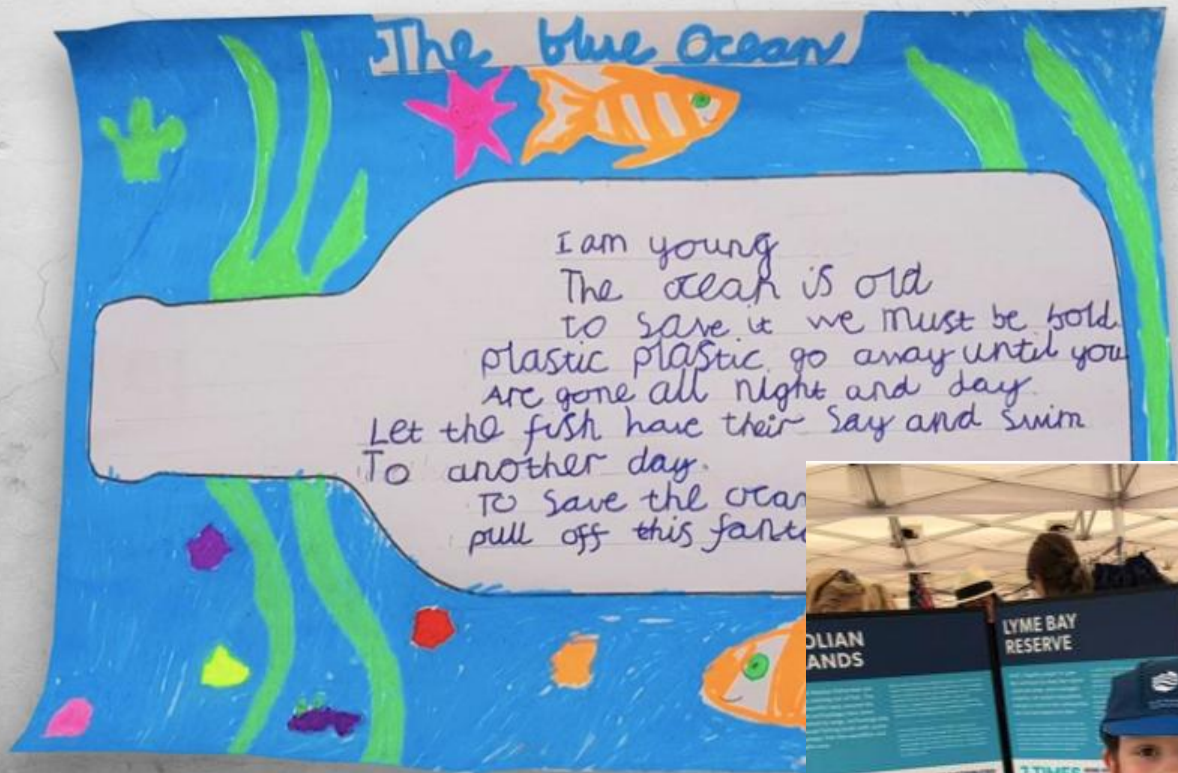 The blue Ocean
I am young
The ocean is old
to save it we must be bold.
plastic plastic go away until you
are gone all night and day.
Let the fish have their say and swim
To another day.
To save the
pull off this
OLIAN
ANDS
LYME BAY
RESERVE
7 TIMES